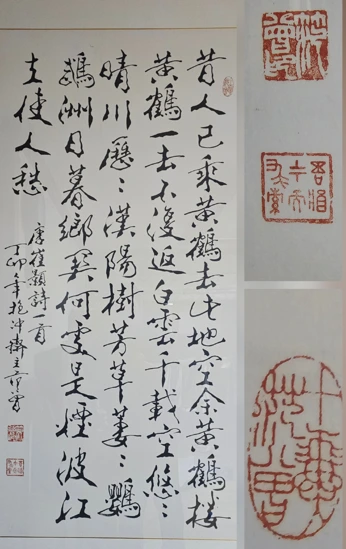 昔人已乘黃鶴去此地空余黃鶴樓
黃鶴一去不復返白雲千載空悠々
晴川歷々漢陽樹芳草萋々鸚
鵡洲日暮鄉關何處是煙波江
上使人愁
唐崔顥詩一首
丁卯年抱沖齋主范曾